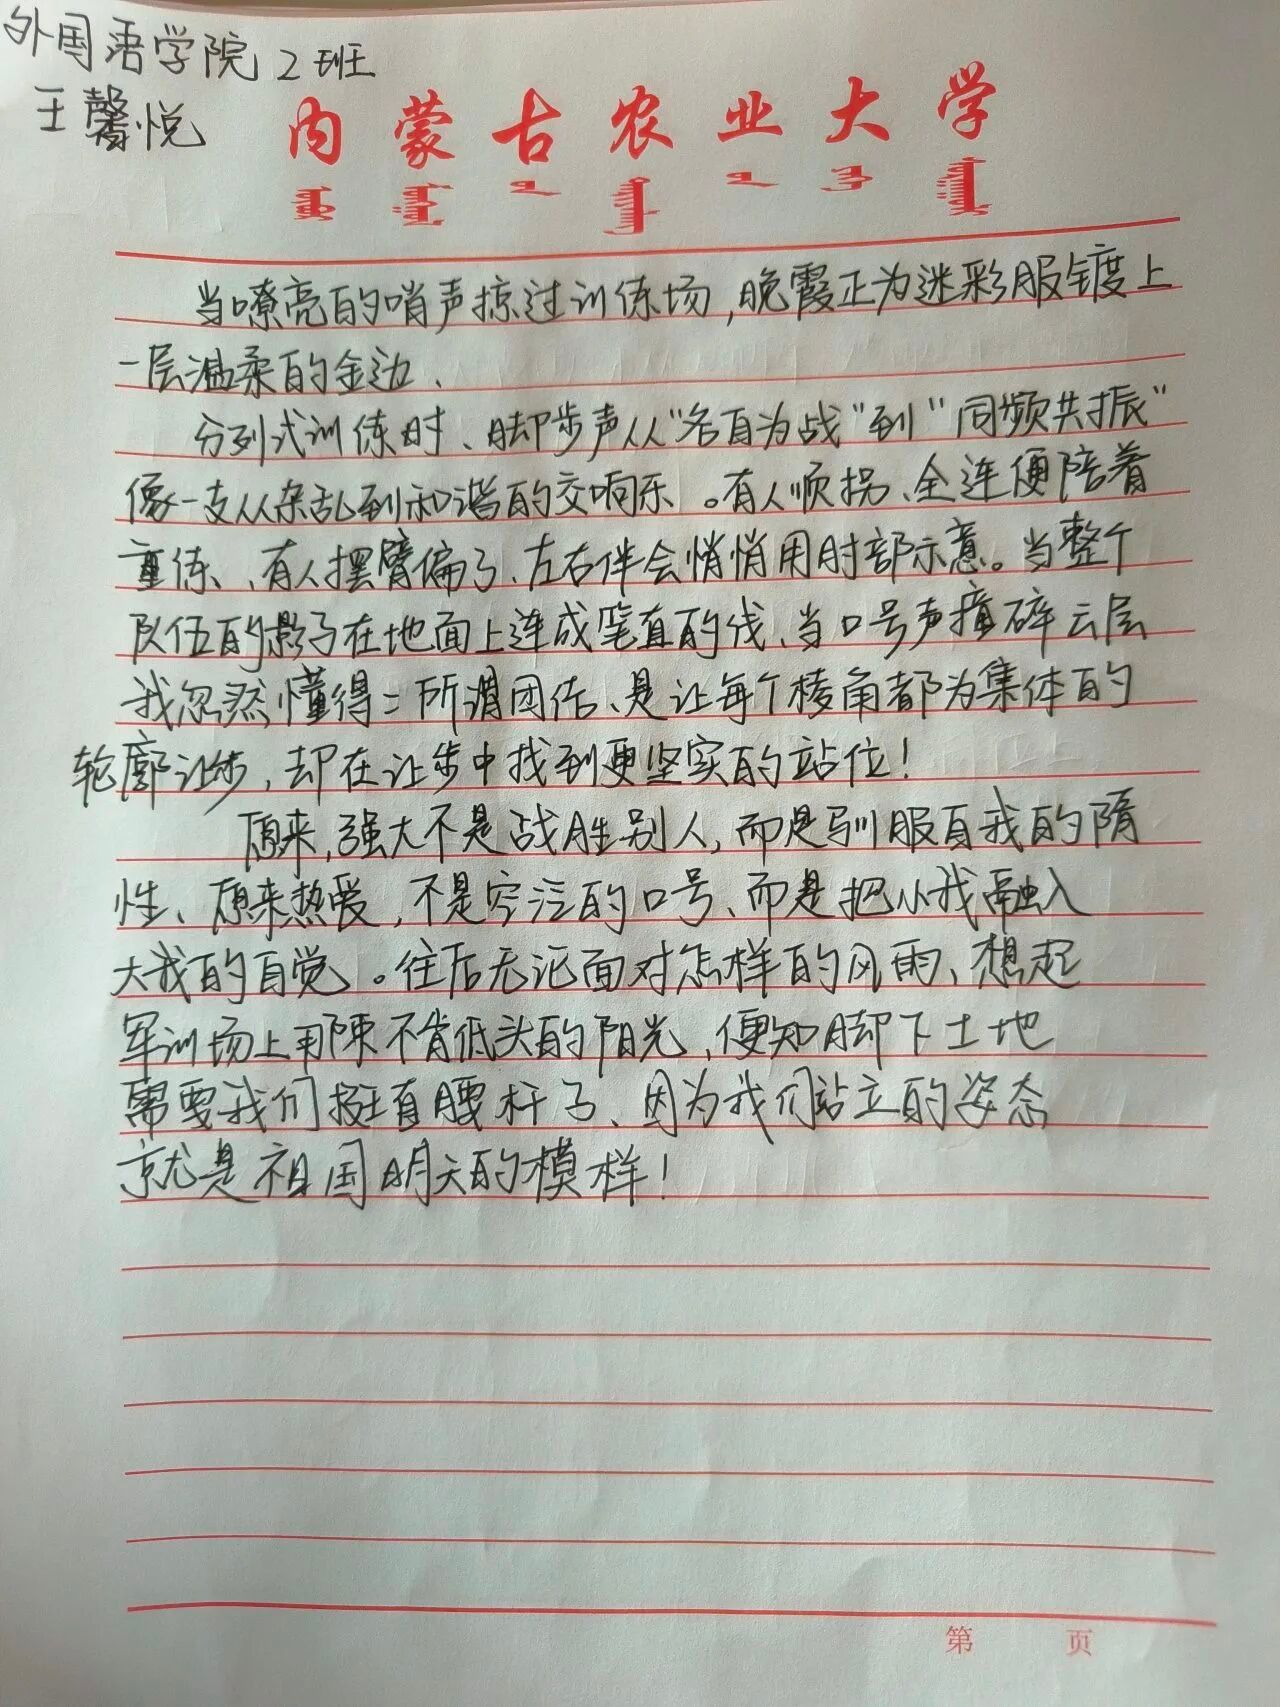 外国语学院 2班
王馨悦
内蒙古农业大学
当嘹亮的哨声掠过训练场,晚霞正为迷彩服镀上
一层温柔的金边、
分列式训练时、脚步声从"各自为战"到"同频共振"
像一支从杂乱到和谐的交响乐。有人顺拐、全连便陪着
重练、有人摆臂偏了、左右伴会悄悄用肘部示意。当整个
队伍的影子在地面上连成笔直的线、当口号声撞碎云层
我忽然懂得:所谓团结、是让每个棱角都为集体的
轮廓让步,却在让步中找到更坚实的站位!
原来,强大不是战胜别人,而是驯服自我的惰
性、原来热爱,不是空泛的口号、而是把小我融入
大我的自觉。往后无论面对怎样的风雨、想起
军训场上那不肯低头的阳光,便知脚下土地
需要我们挺直腰杆子、因为我们站立的姿态
就是祖国明天的模样!
第 页